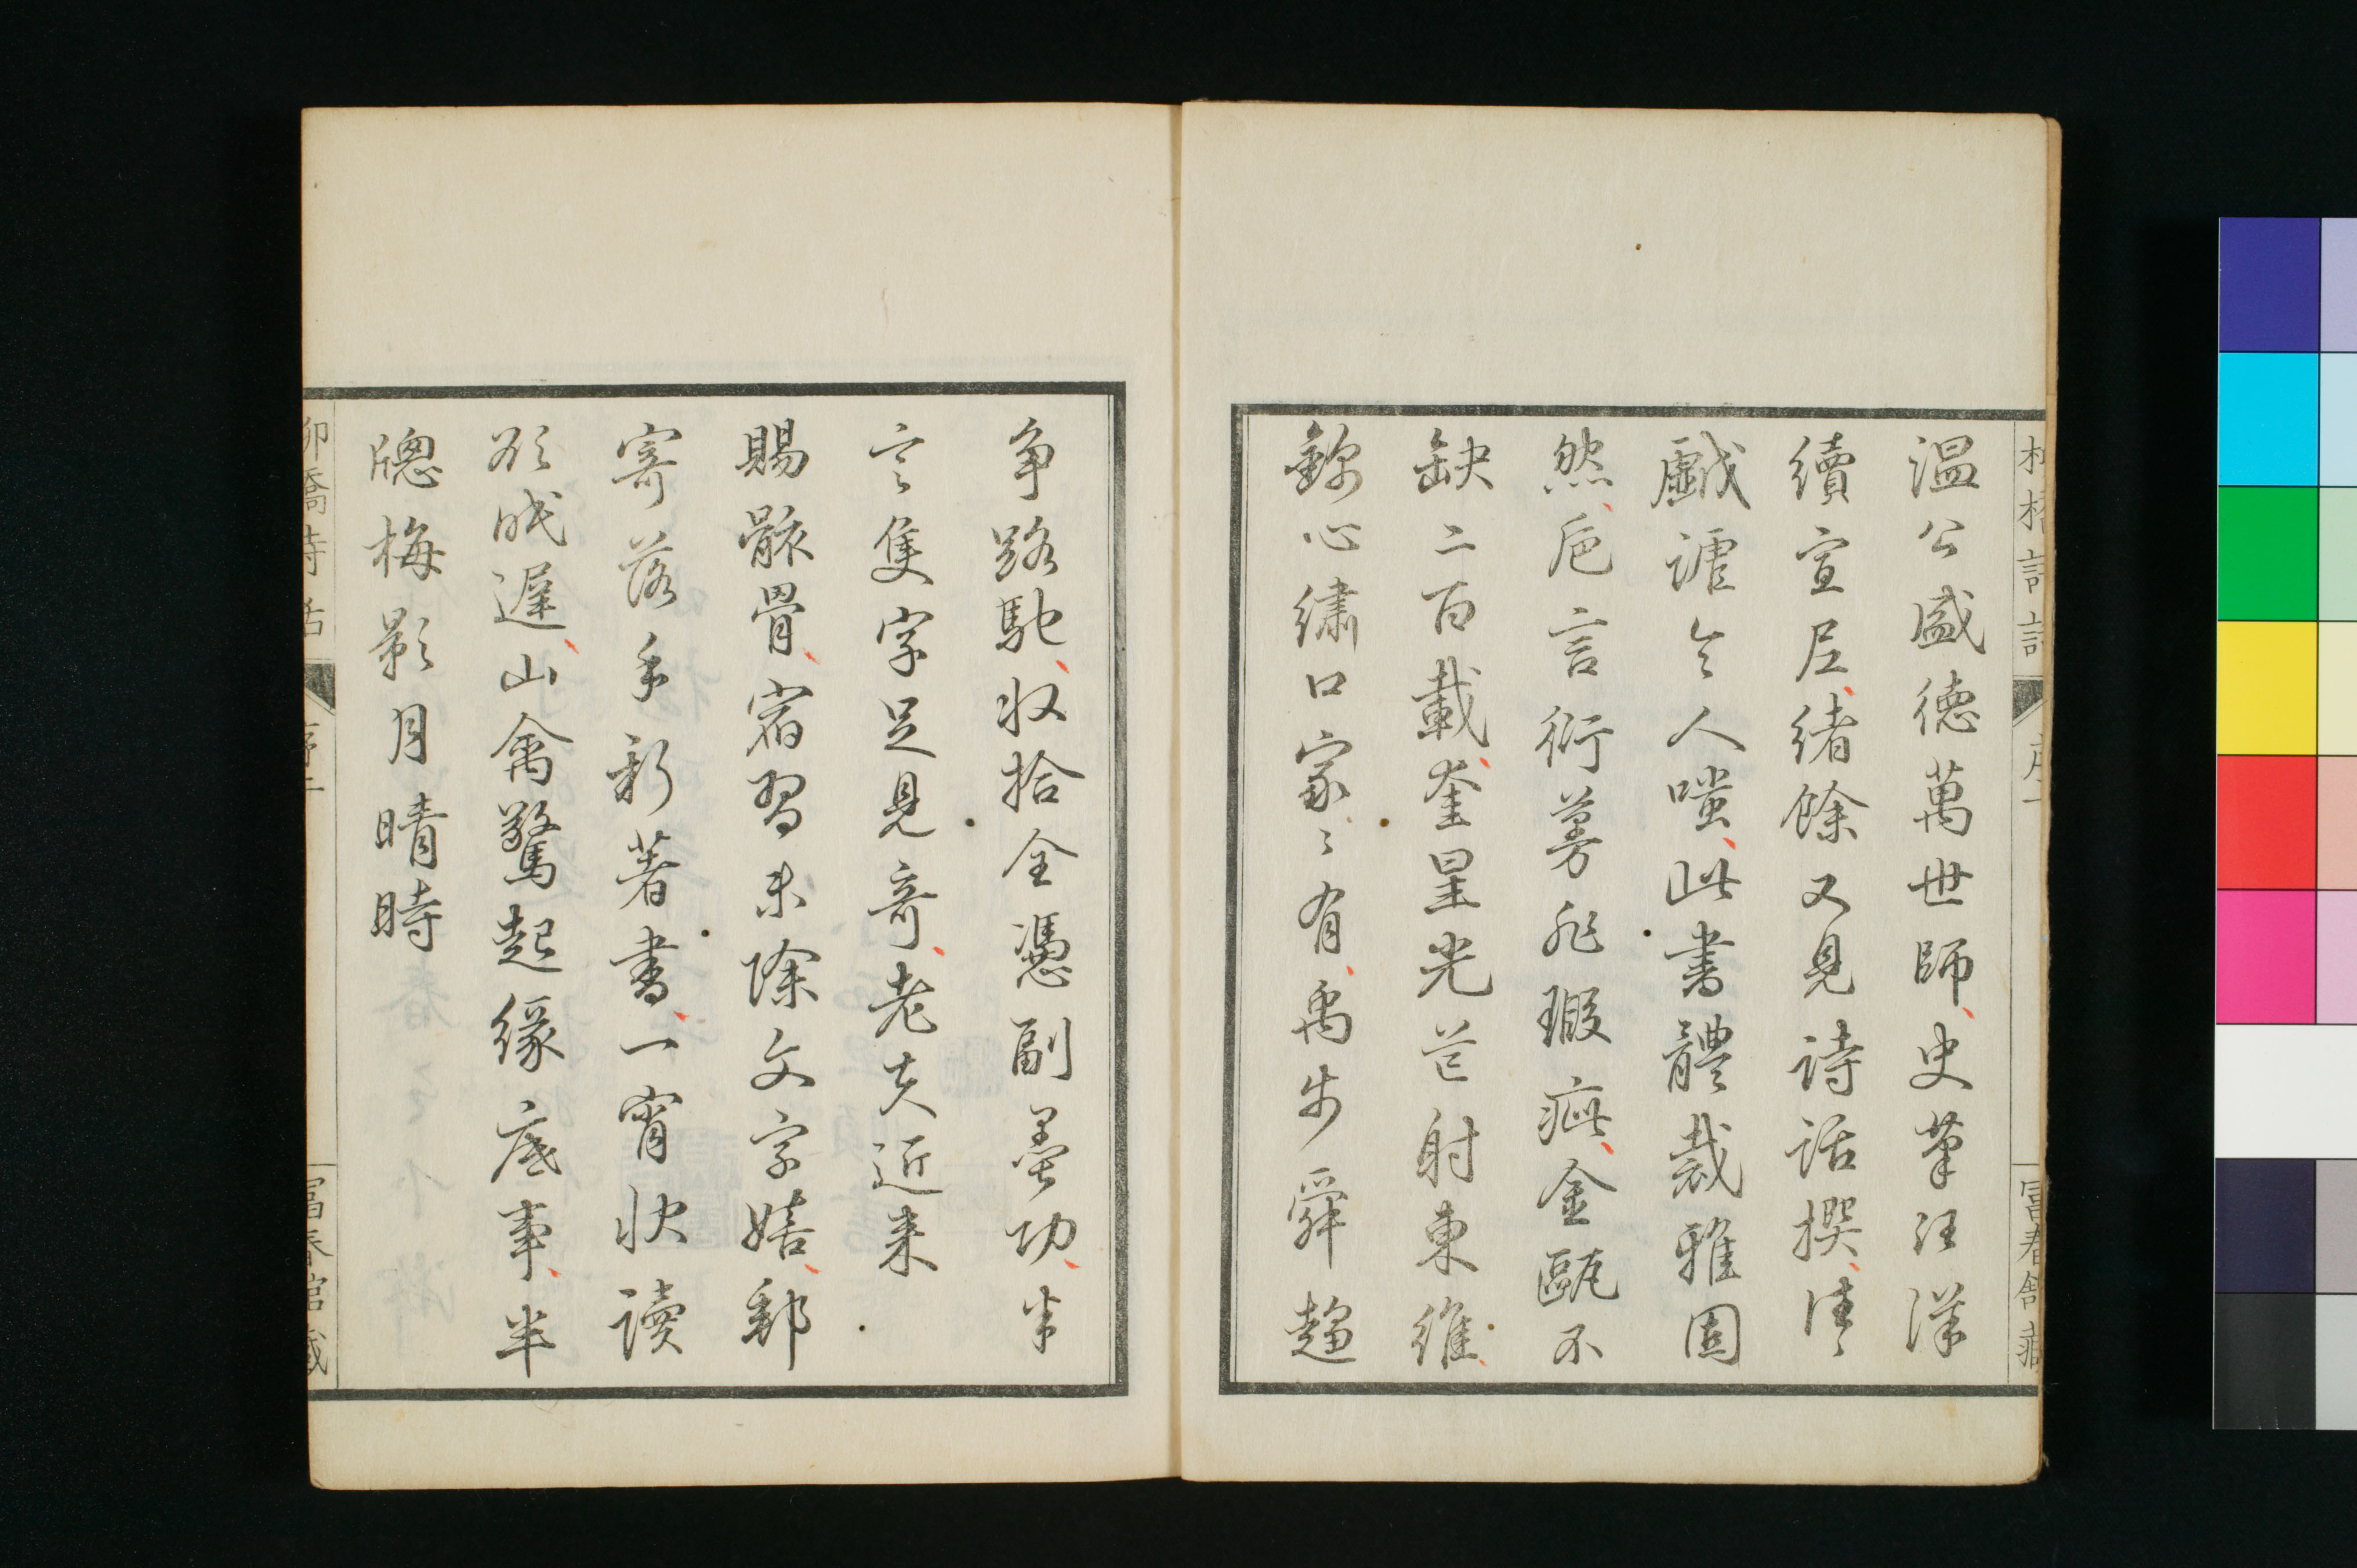 温公盛德萬世師史筆汪洋
續宣尼緒餘又見詩話撰待
戲謔令人嗤此書體裁雅固
然巵言衍蔓非瑕疵金甌不
缺二百載奎星光芒射東維
錦心繡口家〻有禹步舜趨
爭路馳収拾全憑副墨功半
言隻字足見奇老夫近来
賜骸骨宿習未除文字嬉郵
寄落手新著書一宵快讀
欲成遲山禽驚起緣底事半
牕梅影月晴時
柳橋詩話
序二